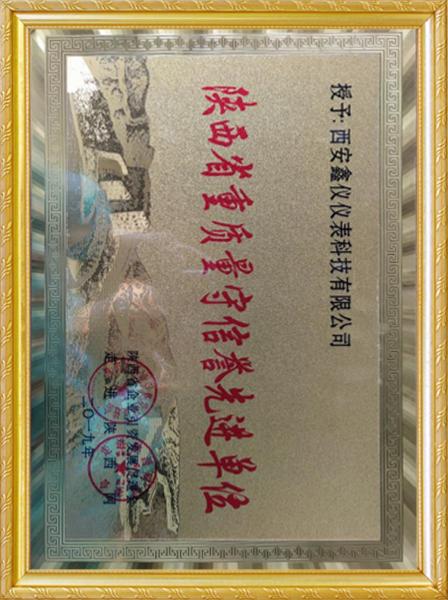 授予:西安鑫仪仪表科技有限公司
陕西省重质量守信誉先进单位
走进陕西网
二〇一九年